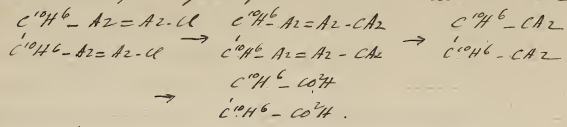 C¹⁰H⁶ – Az = Az – Cl → C¹⁰H⁶ – Az = Az – CAz → C¹⁰H⁶ – CAz
C¹⁰H⁶ – Az = Az – Cl C¹⁰H⁶ – Az = Az – CAz C¹⁰H⁶ – CAz
→ C¹⁰H⁶ – CO²H
C¹⁰H⁶ – CO²H.